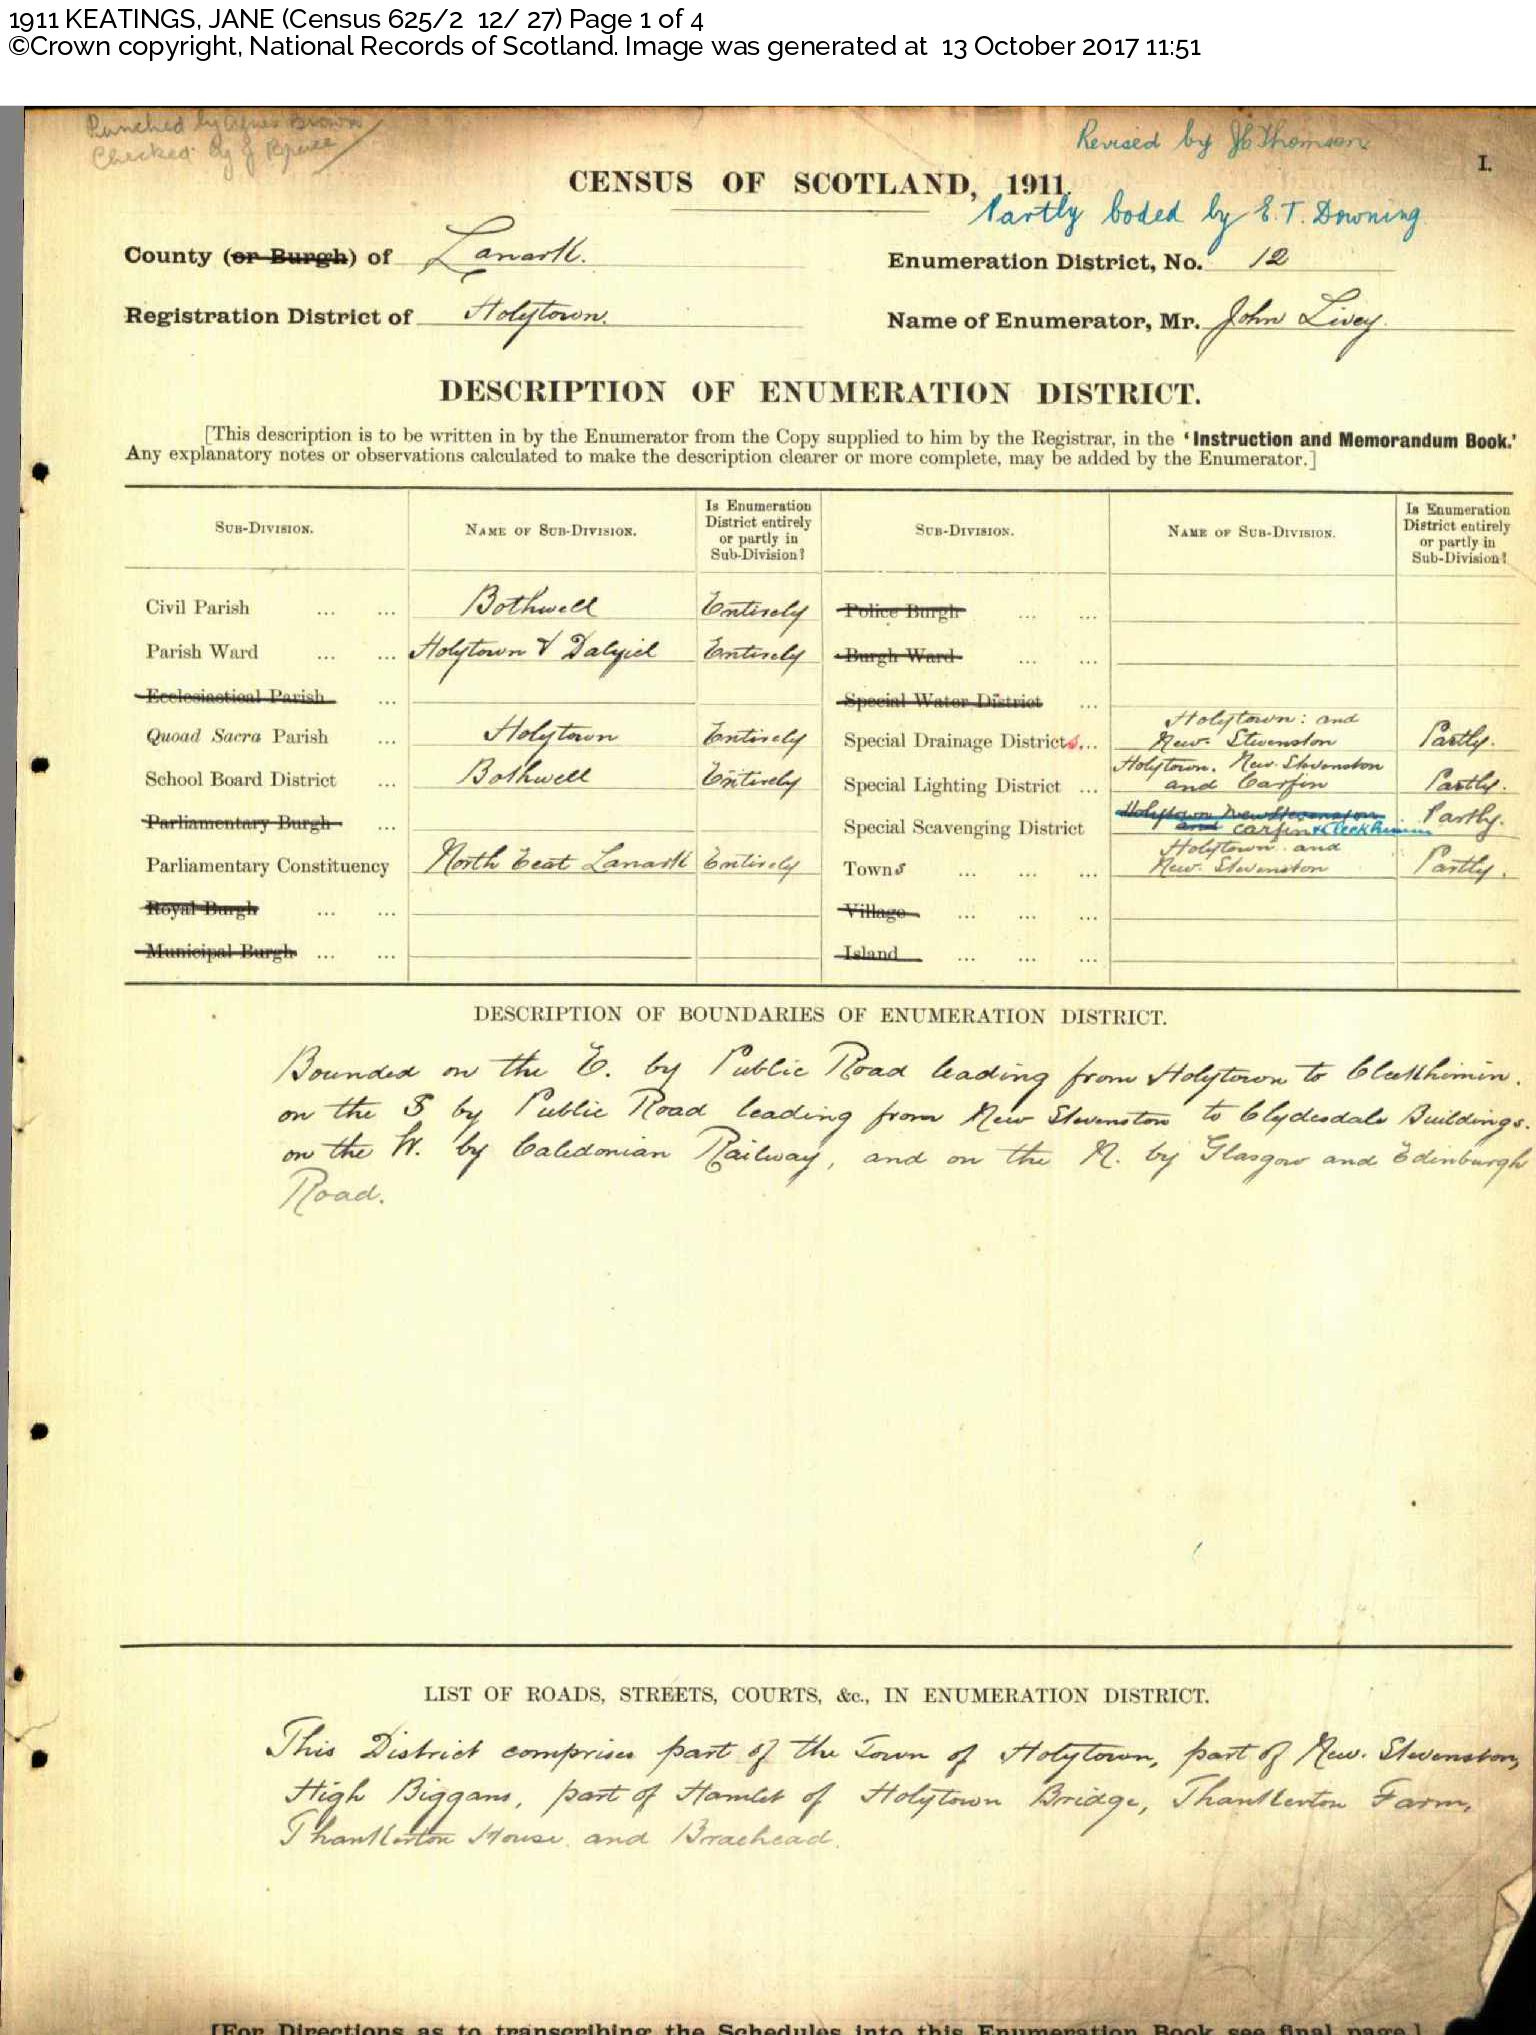 1911 KEATINGS, JANE (Census 625/2 12/ 27) Page 1 of 4
©Crown copyright, National Records of Scotland. Image was generated at 13 October 2017 11:51
Punched by Agnes Brown
Checked by J
Revised by J C Thomson
I.
CENSUS OF SCOTLAND, 1911.
Partly coded by E. T. Downing
County (or Burgh) of Lanark.
Enumeration District, No. 12
Registration District of Holytown.
Name of Enumerator, Mr. John Livey.
DESCRIPTION OF ENUMERATION DISTRICT.
[This description is to be written in by the Enumerator from the Copy supplied to him by the Registrar, in the 'Instruction and Memorandum Book.'
Any explanatory notes or observations calculated to make the description clearer or more complete, may be added by the Enumerator.]
SUB-DIVISION. NAME OF SUB-DIVISION. Is Enumeration District entirely or partly in Sub-Division? SUB-DIVISION. NAME OF SUB-DIVISION. Is Enumeration District entirely or partly in Sub-Division?
Civil Parish ... ... Bothwell Entirely Police Burgh ... ...
Parish Ward ... ... Holytown & Dalziel Entirely Burgh Ward ... ...
Ecclesiastical Parish ... Special Water District ...
Quoad Sacra Parish ... Holytown Entirely Special Drainage Districts... Holytown: and New Stevenston Partly.
School Board District ... Bothwell Entirely Special Lighting District ... Holytown. New Stevenston and Carfin Partly.
Parliamentary Burgh ... Special Scavenging District Holytown New Stevenston and Carfin & Cleekhimin Partly.
Parliamentary Constituency North East Lanark Entirely Towns ... ... ... Holytown and New Stevenston Partly.
Royal Burgh ... ... Village ... ... ...
Municipal Burgh ... ... Island ... ... ...
DESCRIPTION OF BOUNDARIES OF ENUMERATION DISTRICT.
Bounded on the E. by Public Road leading from Holytown to Cleekhimin.
on the S by Public Road leading from New Stevenston to Clydesdale Buildings.
on the W. by Caledonian Railway, and on the N. by Glasgow and Edinburgh
Road.
LIST OF ROADS, STREETS, COURTS, &c., IN ENUMERATION DISTRICT.
This District comprises part of the Town of Holytown, part of New Stevenston,
High Biggans, part of Hamlet of Holytown Bridge, Thankerton Farm,
Thankerton House and Braehead.
[For Directions as to transcribing the Schedules into this Enumeration Book see final page.]